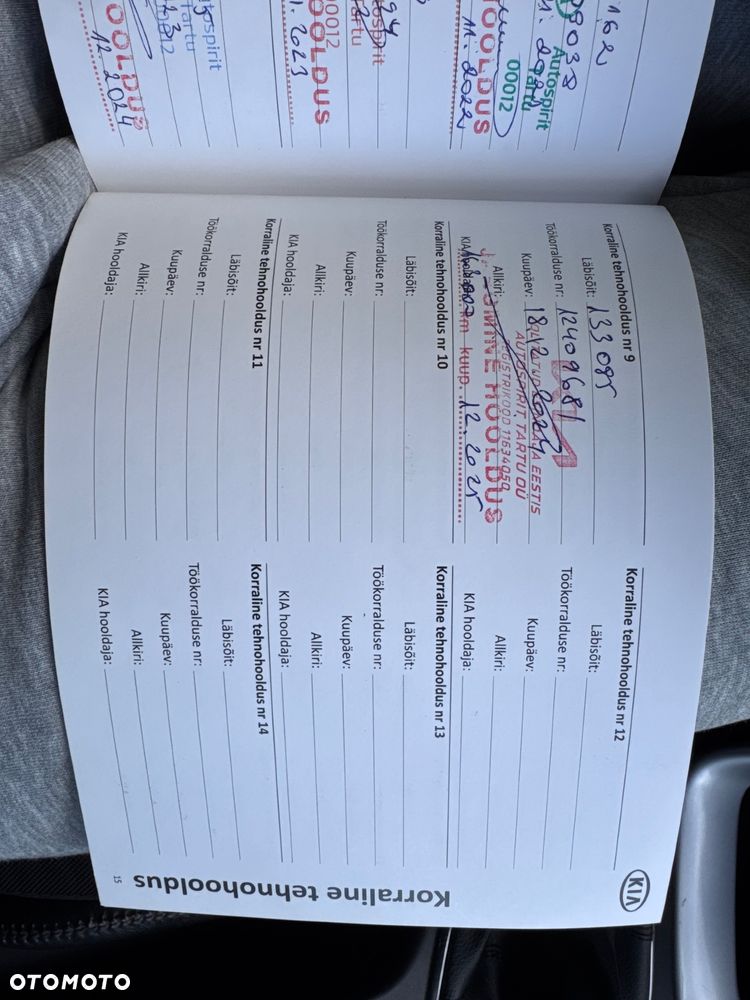 162
09038
Autospirit
Tartu
00012
HOOLDUS
11. 2022
Autospirit
Tartu
00012
HOOLDUS
2023
Autospirit
Tartu
00012
HOOLDUS
12. 2024
KIA
Korraline tehnohooldus
Korraline tehnohooldus nr 9
Läbisõit: 133085
Töökorralduse nr: 12409681
Kuupäev: 18.12.2024
AUTOSPIRIT TARTU OÜ
REGISTRIKOOD 11634059
Allkiri:
HOOLDUS
KIA
km kuup. 12. 2025
Korraline tehnohooldus nr 10
Läbisõit:
Töökorralduse nr:
Kuupäev:
Allkiri:
KIA hooldaja:
Korraline tehnohooldus nr 11
Läbisõit:
Töökorralduse nr:
Kuupäev:
Allkiri:
KIA hooldaja:
Korraline tehnohooldus nr 12
Läbisõit:
Töökorralduse nr:
Kuupäev:
Allkiri:
KIA hooldaja:
Korraline tehnohooldus nr 13
Läbisõit:
Töökorralduse nr:
Kuupäev:
Allkiri:
KIA hooldaja:
Korraline tehnohooldus nr 14
Läbisõit:
Töökorralduse nr:
Kuupäev:
Allkiri:
KIA hooldaja:
15
OTOMOTO